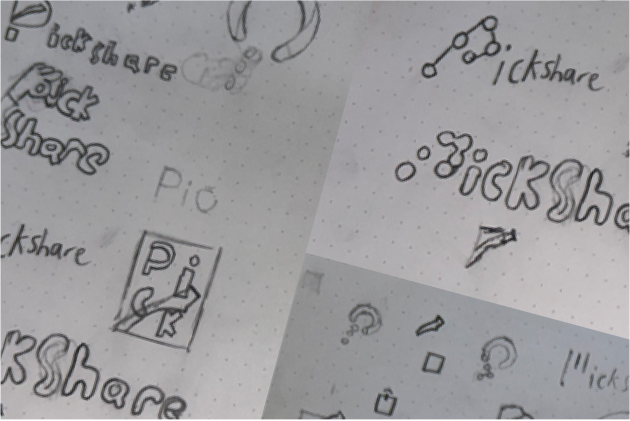 Pickshare
Pick
Share
Pic
ckshare
Pi
ck
kShare
ickshare
ickSha
"icks